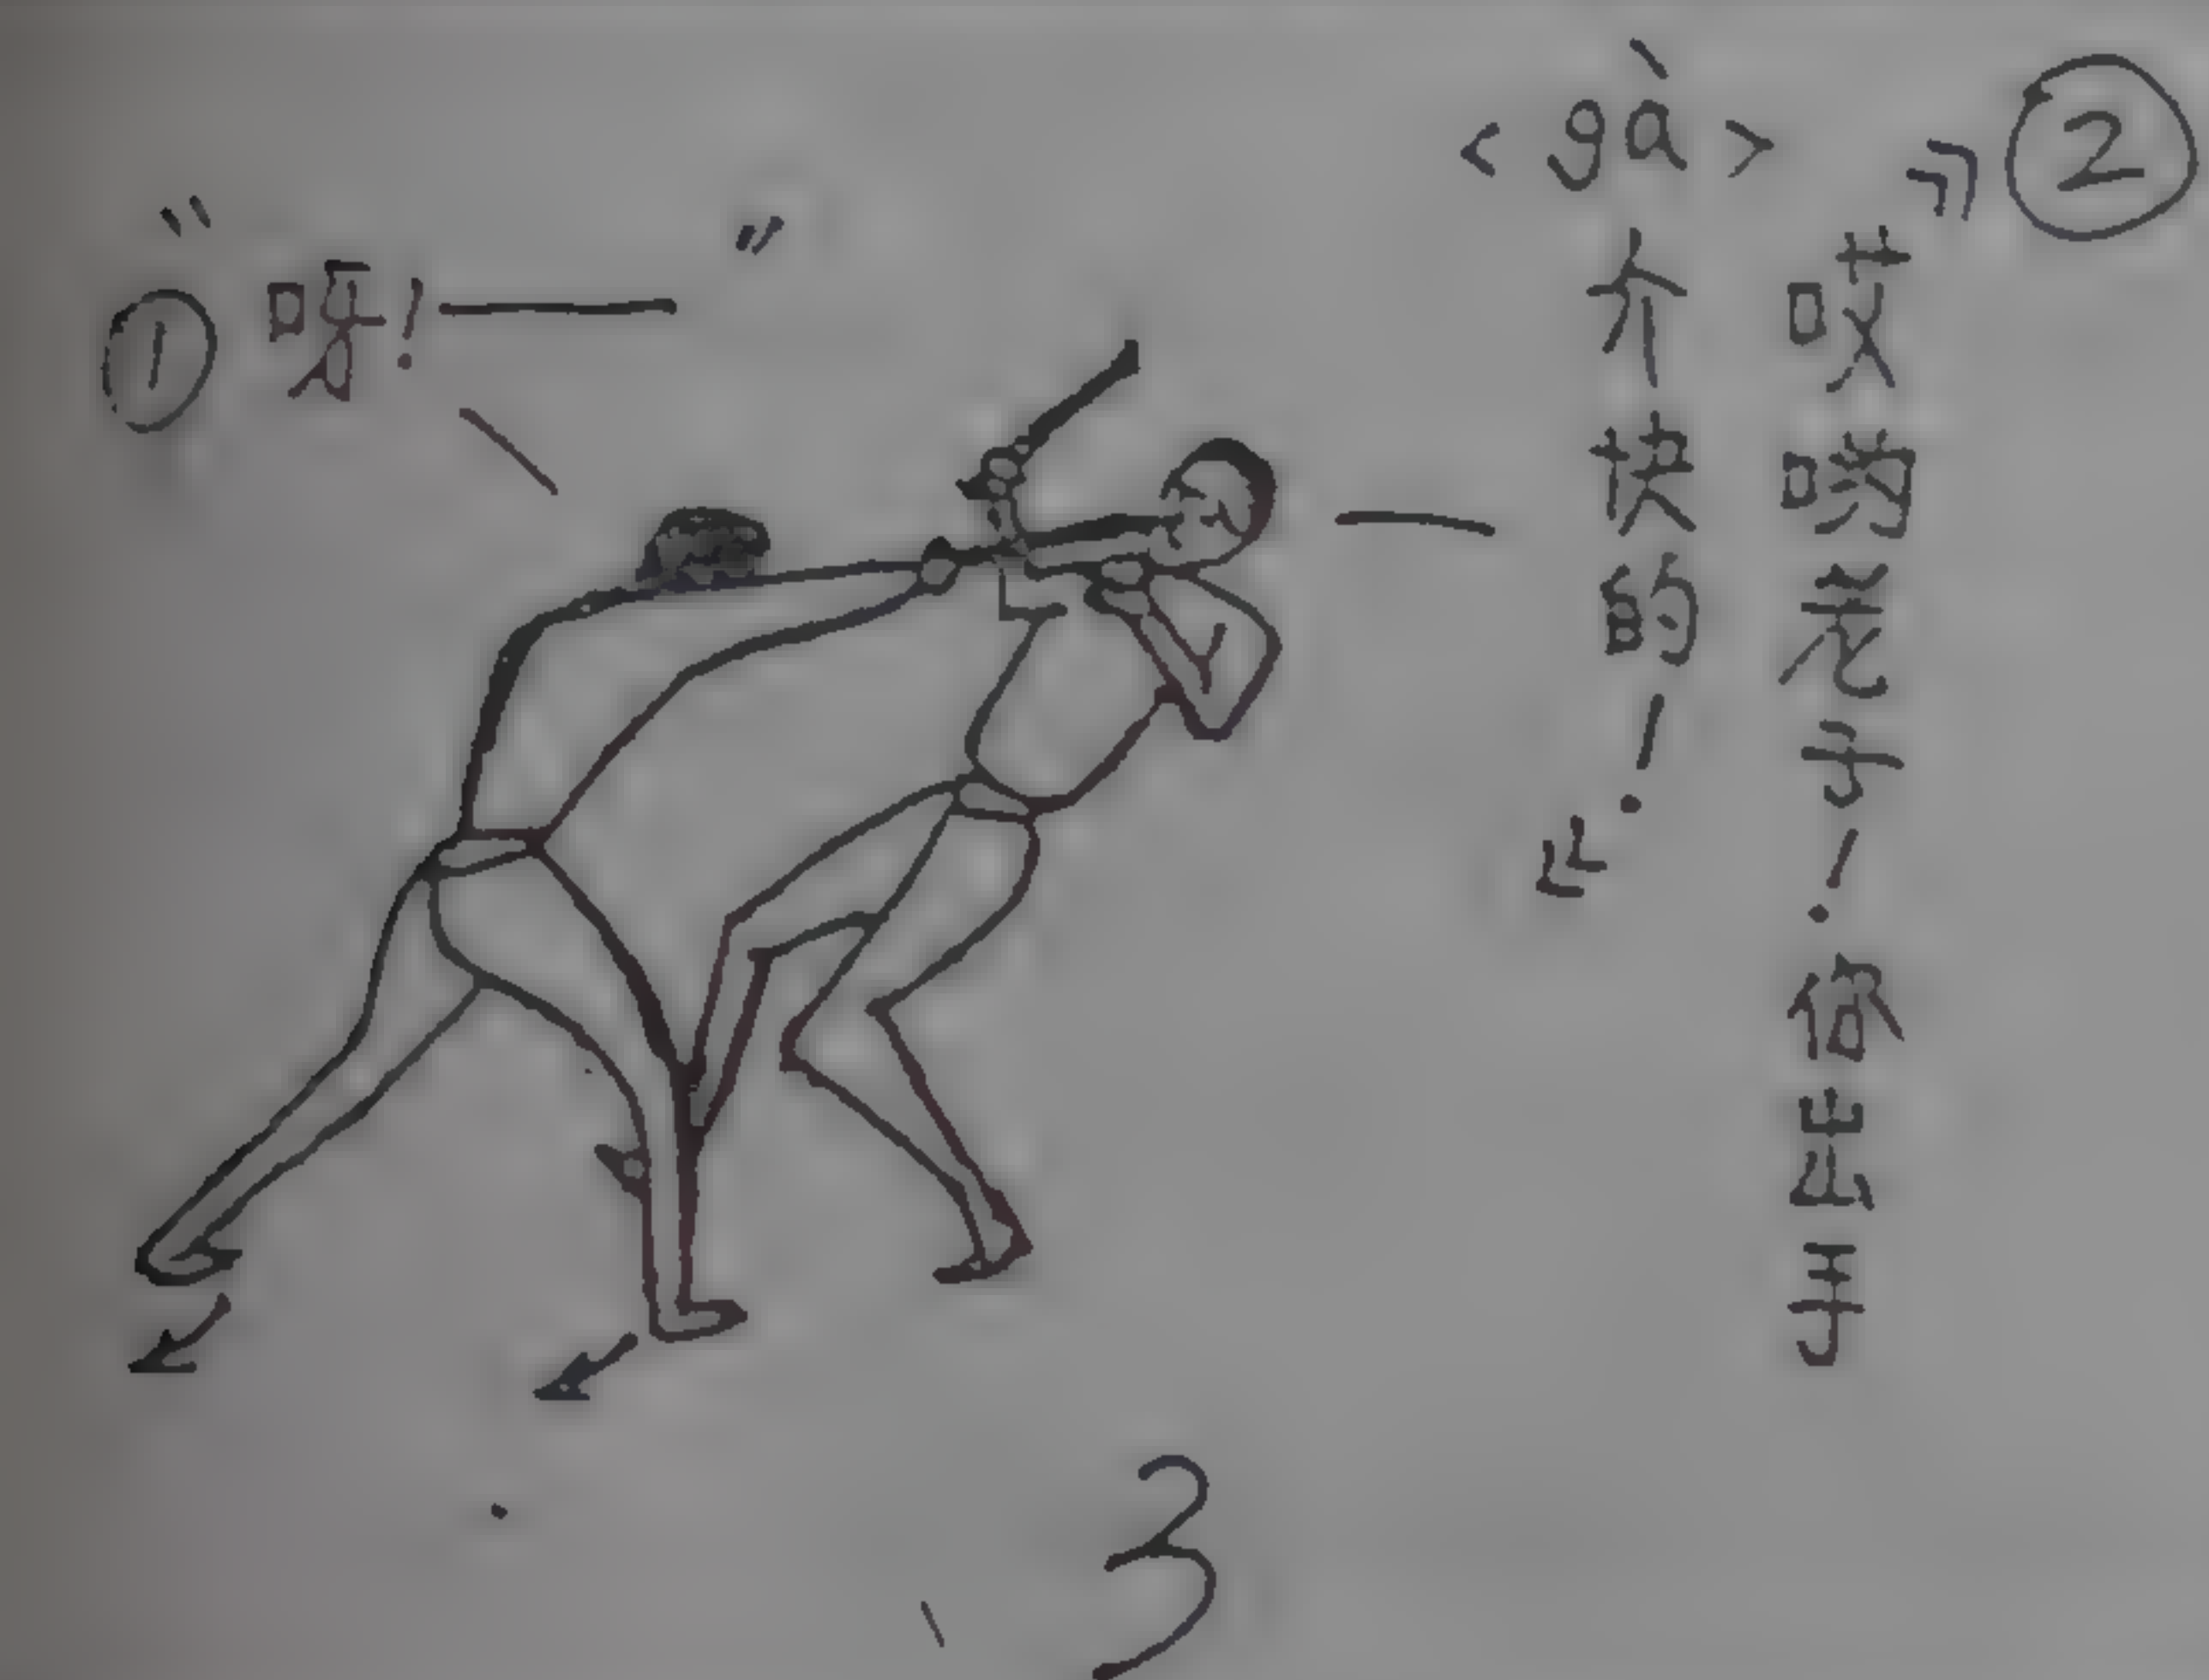 ① "呀!——"
② 『哎哟老子!你出手
<gà>介快的!』
3